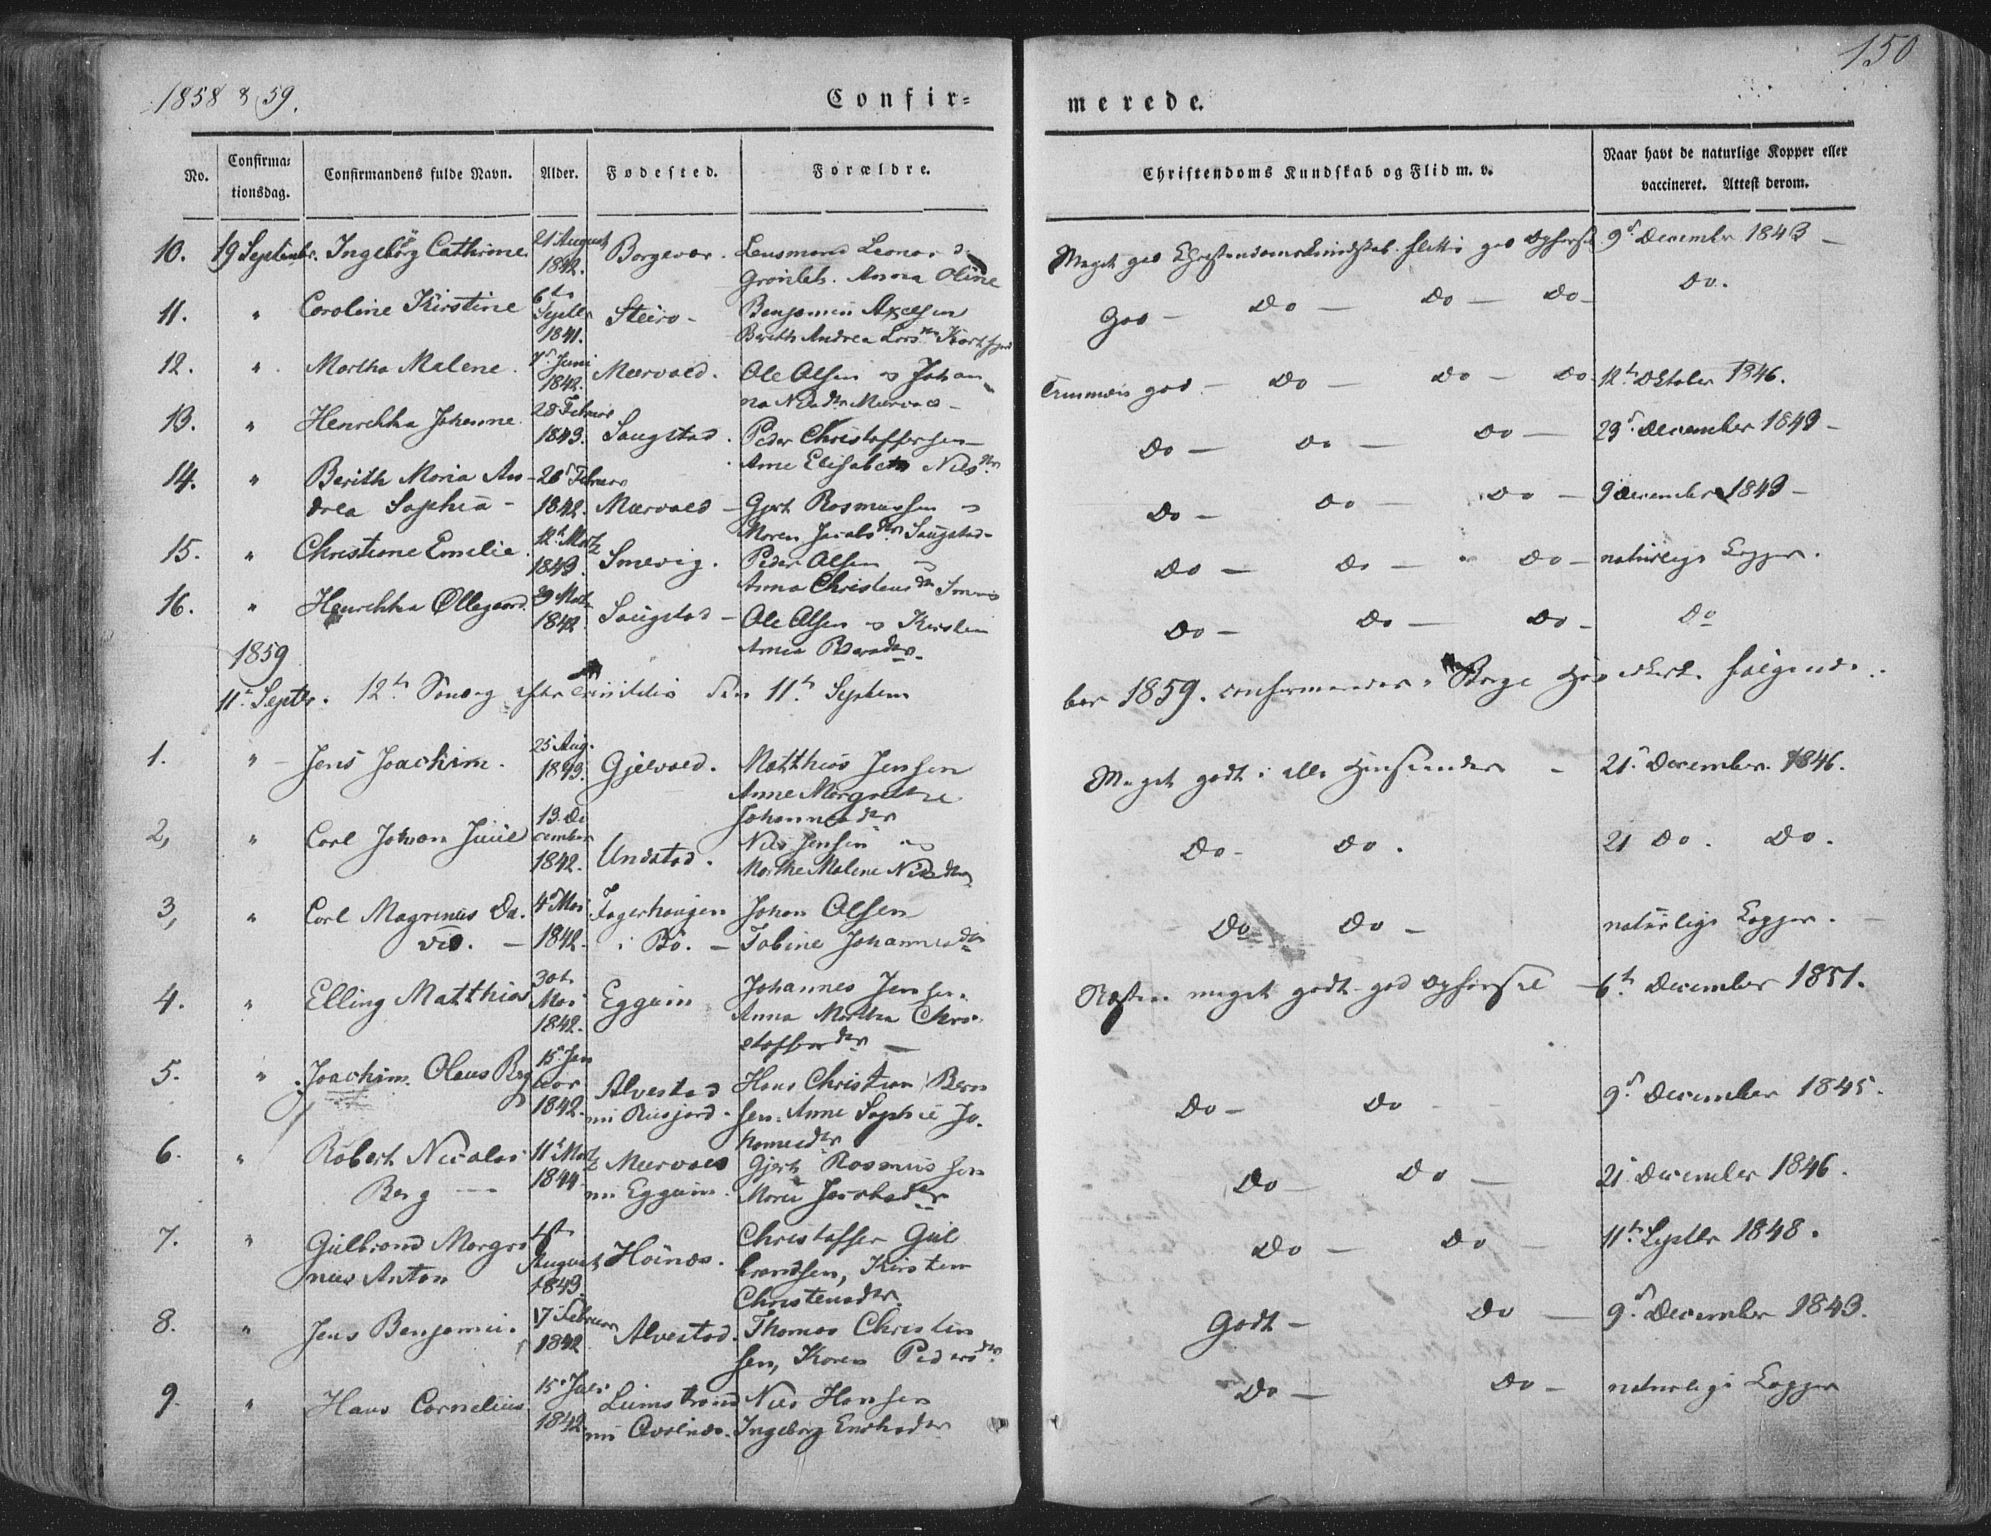 150
1858 & 59.
Confir=
merede.
No.
Confirma=
tionsdag.
Confirmandens fulde Navn.
Alder.
Fødested.
Forældre.
Christendoms Kundskab og Flid m. v.
Naar havt de naturlige Kopper eller
vaccineret. Attest derom.
10. 19 Septembr. Ingebörg Cathrine 21 August 1842. Borgevær. Lensmand Leonard
Grönbech. Anna Oline
Meget god Christendomskundskab. god Opførsel 9de December 1843 –
11. " Caroline Kirstine 6te Septbr 1841. Steiro – Benjamin Axelsen
Berith Andrea Lars
God – Do – Do – Do – Do.
12. " Martha Malene. 7de Juni 1842. Mærvold. Ole Olsen og Johan
na Nilsdtr Mærvold –
Temmelig god – Do – Do – Do 12te Oktober 1846.
13. " Henrikka Johanne 28 Februar 1843. Saugstad. Peder Christoffersen –
Ane Elisabeth Nilsdtr
Do – Do – Do – 29de December 1843 –
14. " Berith Maria An-
drea Sophia – Februar 1842. Mærvold – Gjert Rasmussen og
Maren Jacobsdtr Saugstad –
Do – Do – Do – 9 December 1843 –
15. " Christiane Emelie. 12te Martz 1843. Smevig. Peder Olsen og
Anna Christensdtr
Do – Do – Do – naturlige Kopper.
16. " Henrikka Øllegaard. Martz 1842 Saugstad – Ole Olsen og Kirsten
Anna
Do – Do – Do – Do
1859
11te Septbr. 12te Sönd. efter Trinitatis den 11te Septem
ber 1859. confirmeredes i Borge følgende.
1. " – Jens Joachim. 25 Aug. 1843. Gjelvold. Matthias Jensen
Anne Margrethe
Johannesdtr
Meget godt i alle Henseender – 21de December 1846.
2, " Carl Johan Juul 13. De
cember
1842. Undstad. Nils Jensen og
Marthe Malene Nilsdtr
Do – Do. 21 Do. Do.
3, " Carl Magrinus Da-
vid. – 4de Mai 1842. Fagerhaugen
i Bö. – Johan Olsen
Tobine Johannesdtr
Do Do – naturlige Kopper. –
4. " Elling Matthias 30te
Mai
1842. Eggum Johannes Jensen.
Anna Martha Chri-
stoffersdtr –
Næsten meget godt – god Opførsel – 6te December 1851.
5. " Joachim Olaus Berg 15de Jan
uar
1842. Alvestad
nu Rusjord. Hans Christian Bern
sen. Anne Sophie Jo-
hannesdtr
Do – Do – 9de December 1845.
6. " Robert Nicolai
Berg – 11te Martz 1844 Mærvold
nu Eggum. Gjert Rasmussen
Maren Jacobsdtr
Do – Do – 21de December 1846.
7. " Gulbrand Margri
nus Anton 1ste
August
1843. Höinæs. Christoffer Gul
brandsen, Kirsten
Christensdtr.
Do – Do – 11te Septbr 1848.
8. " Jens Benjamin. 17de Februar 1842 Alvestad. Thomas Christen
sen, Karen Pedersdtr
Godt – Do – 9de December 1843.
9. " Hans Cornelius 15de Juli 1842 Limstrand
nu Nils Hansen
Ingeborg
Do – Do – naturlige Kopper